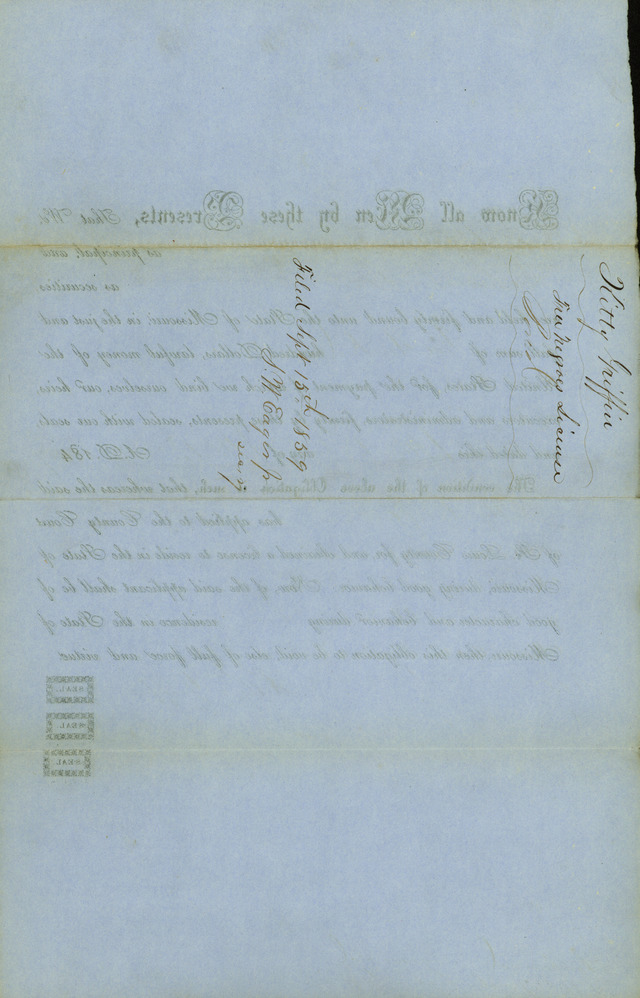 Kitty Griffin
Free Negroes License
Filed Sept 15th 1859
Know all Men by these Presents, That We
as principal, and
as securities
held and firmly bound unto the State of Missouri in the just and
of Hundred Dollars, lawful money of the
United States, for the payment of which we bind ourselves, our heirs,
executors and administrators, firmly by these presents, sealed with our seals
and dated this day of A.D. 184
The condition of the above Obligation is such, that whereas the said
has applied to the County Court
of St. Louis County for and obtained a license to reside in the State of
Missouri, during good behavior. Now, if the said applicant shall be of
good character and behavior during residence in the State of
Missouri, then this obligation to be void, else of full force and virtue.
SEAL.
SEAL
SEAL